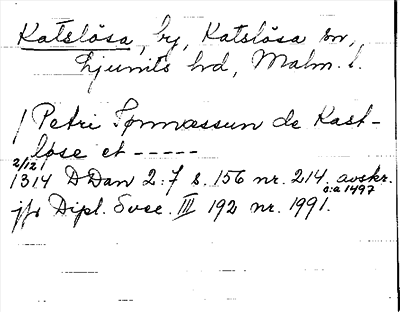 Katslösa, by, Katslösa sn,
Ljunits hd, Malm. l.
/ Petri Tønnæssun de Kast-
løse et - - - - -
2/12
1314 DDan 2:7 s. 156 nr. 214. avskr.
o:a 1497
jfr Dipl. Svec. III 192 nr. 1991.